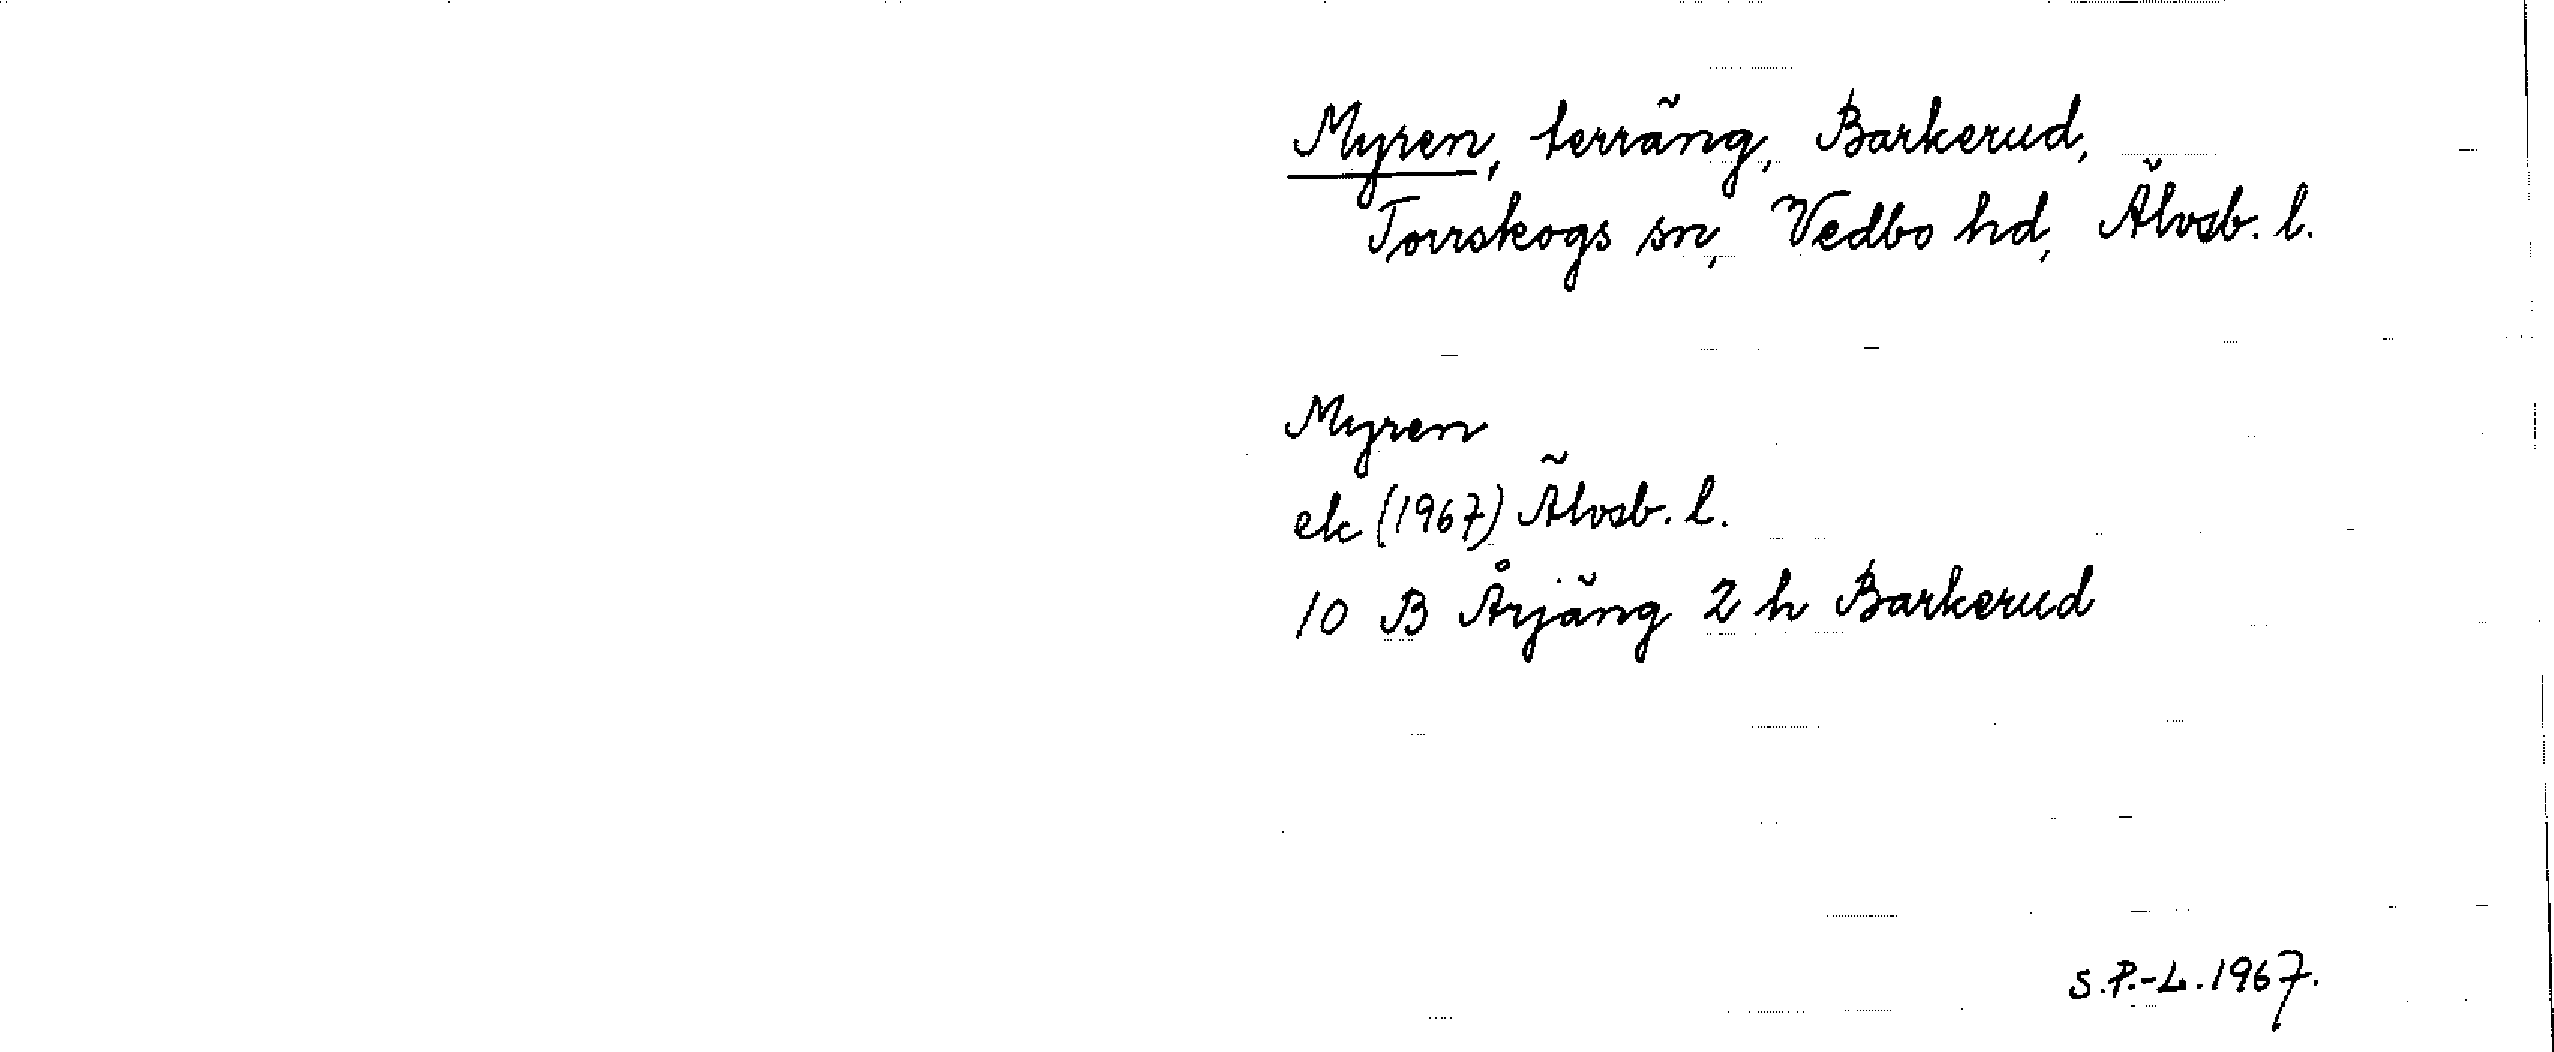 Myren, terräng, Barkerud,
Torrskogs sn, Vedbo hd, Älvsb. l.
Myren
ek (1967) Älvsb. l.
10 B Årjäng 2 h Barkerud
S.P.-L. 1967.